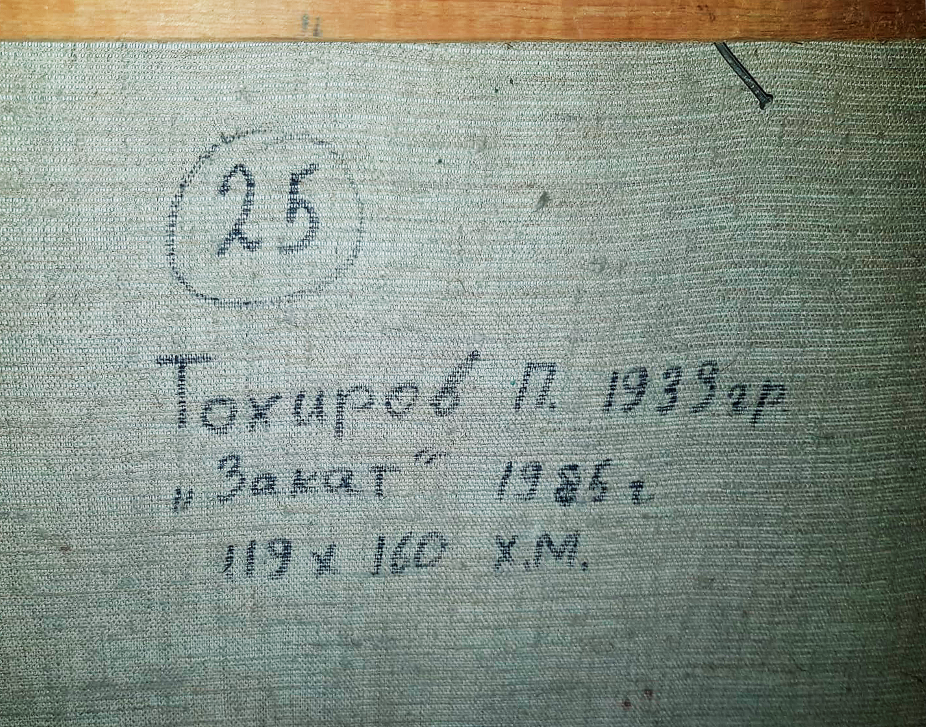 25
Тохиров П. 1939 гр
„Закат" 1985 г
119 х 160 х.м.